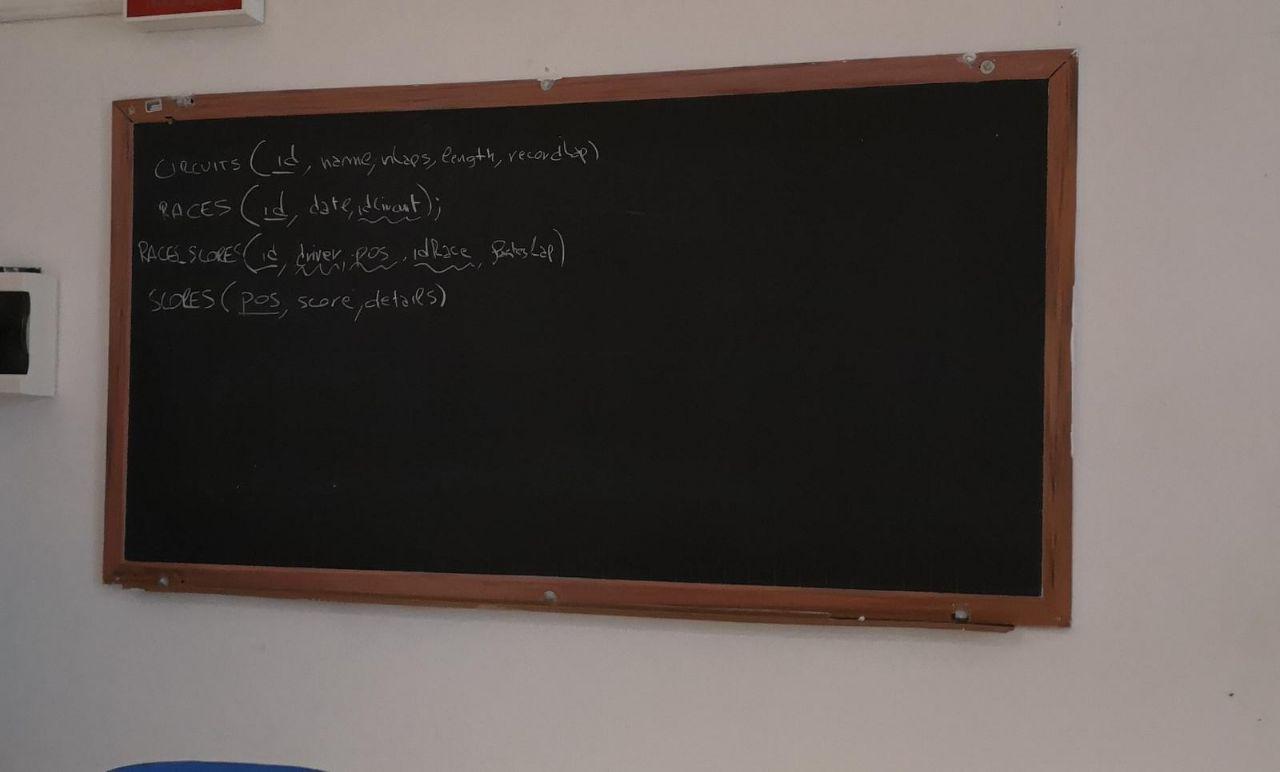 CIRCUITS (id, name, nLaps, length, recordLap)
RACES (id, date, idCircuit);
RACES_SCORES (id, driver, pos, idRace, fastesLap)
SCORES (pos, score, details)